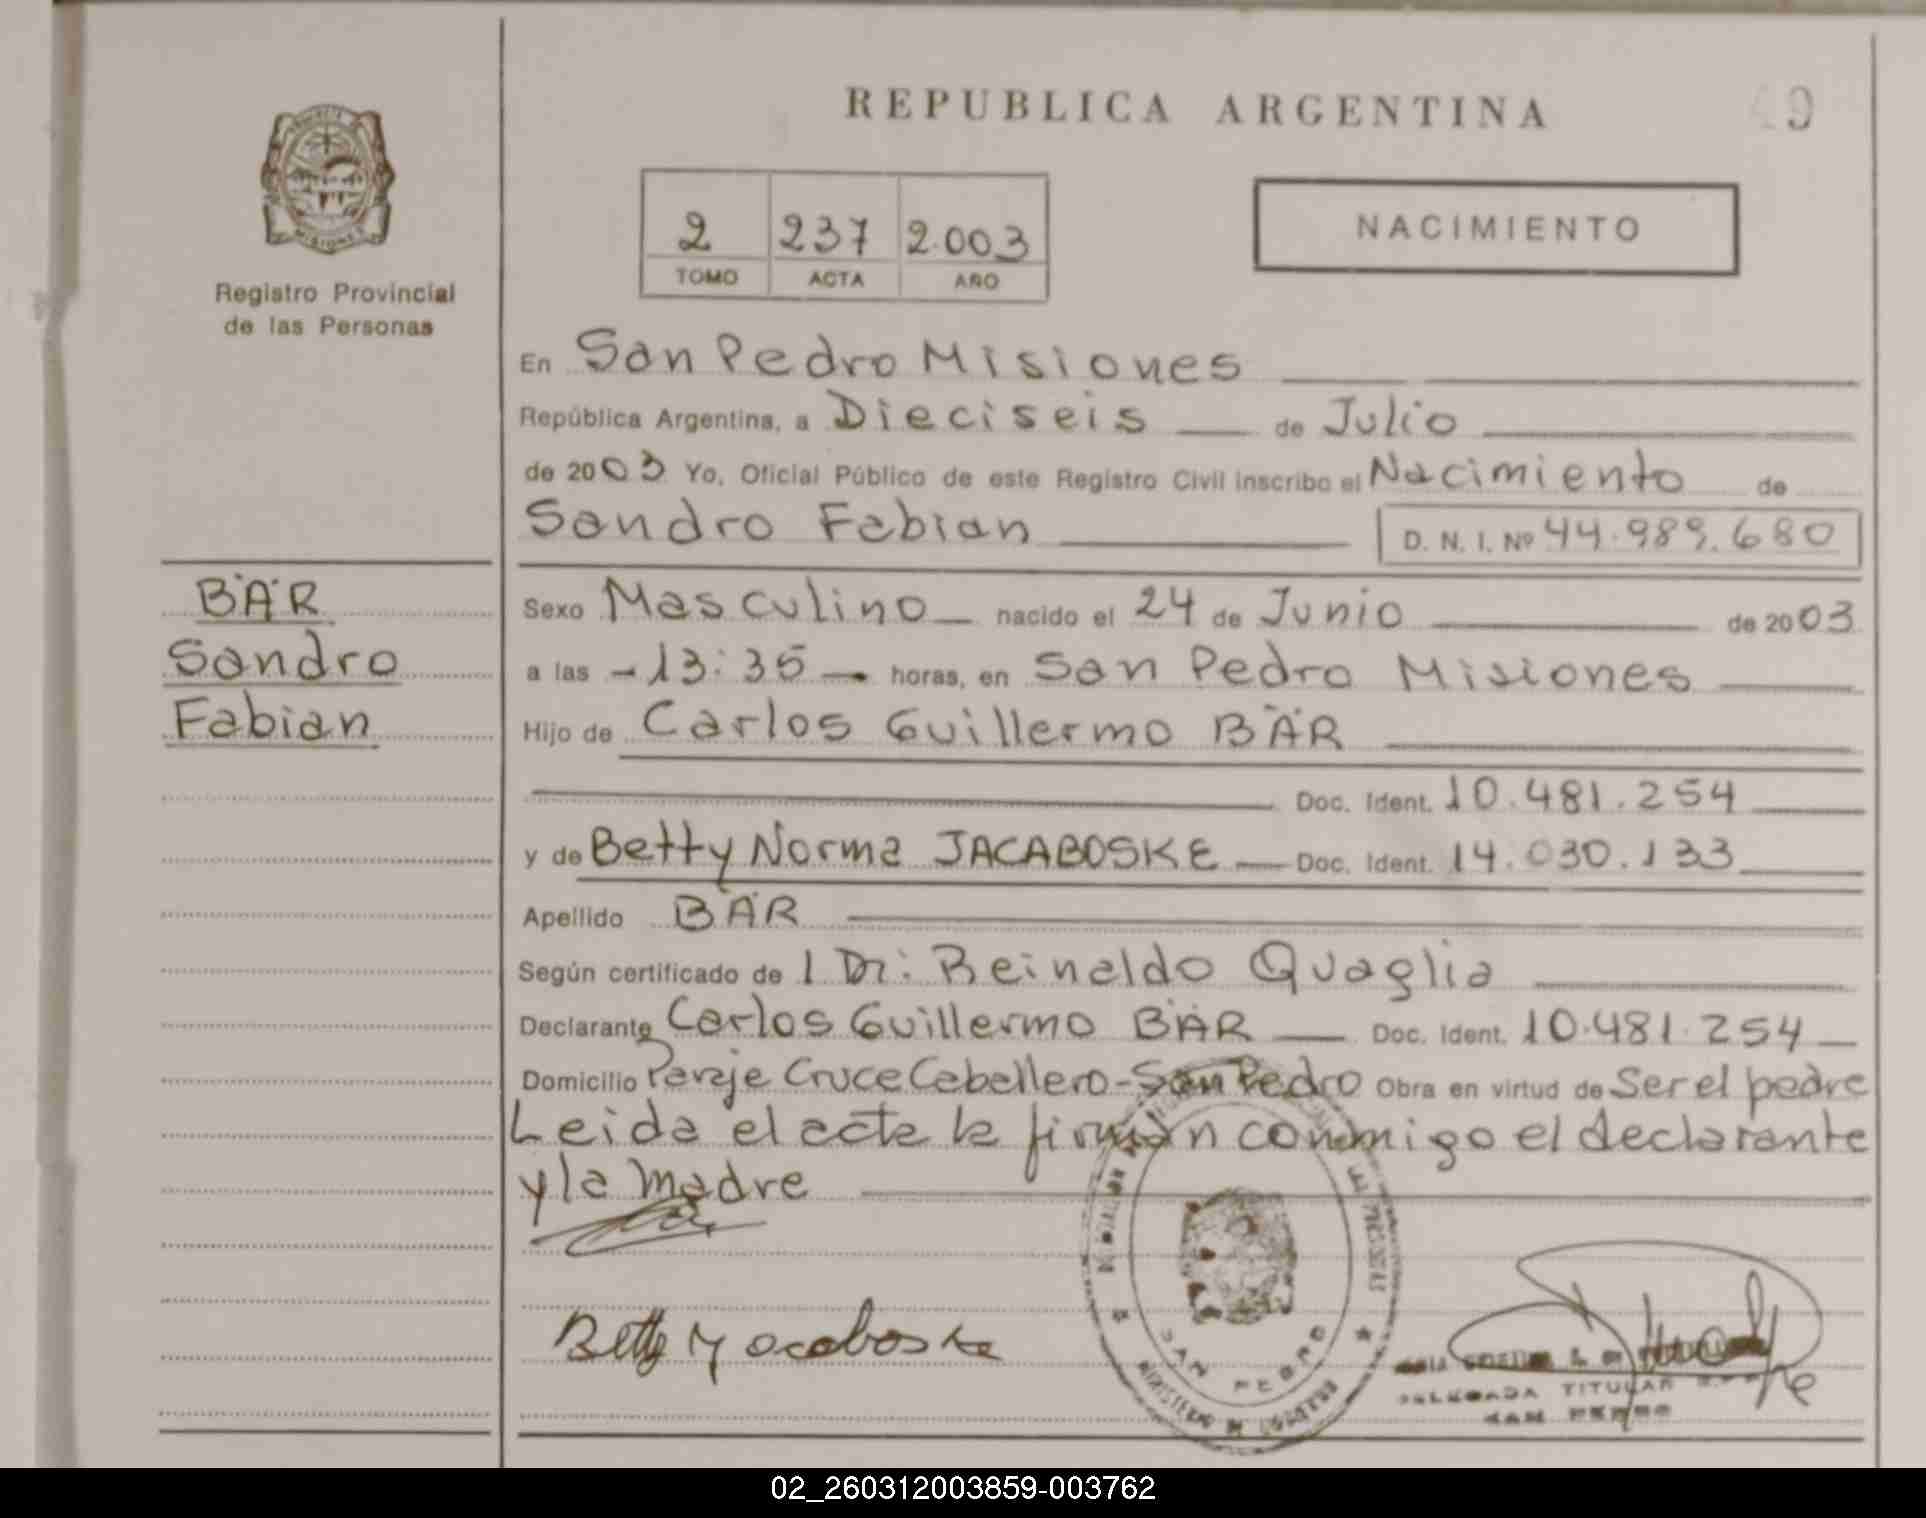 REPUBLICA ARGENTINA
49
MISIONES
Registro Provincial
de las Personas
2 237 2.003
TOMO ACTA AÑO
NACIMIENTO
En San Pedro Misiones
República Argentina, a Dieciseis de Julio
de 2003 Yo, Oficial Público de este Registro Civil inscribo el Nacimiento de
Sandro Fabian D. N. I. Nº 44.989.680
BÄR
Sandro
Fabian
Sexo Masculino nacido el 24 de Junio de 2003
a las -13:35- horas, en San Pedro Misiones
Hijo de Carlos Guillermo BÄR
Doc. Ident. 10.481.254
y de Betty Norma JACABOSKE Doc. Ident. 14.030.133
Apellido BÄR
Según certificado de l Dr: Reinaldo Quaglia
Declarante Carlos Guillermo BÄR Doc. Ident. 10.481.254
Domicilio Paraje Cruce Caballero-San Pedro Obra en virtud de Ser el padre
Leida el acta la firman conmigo el declarante
y la madre
Betty
SAN PEDRO
TITULAR
SAN PEDRO
02_260312003859-003762